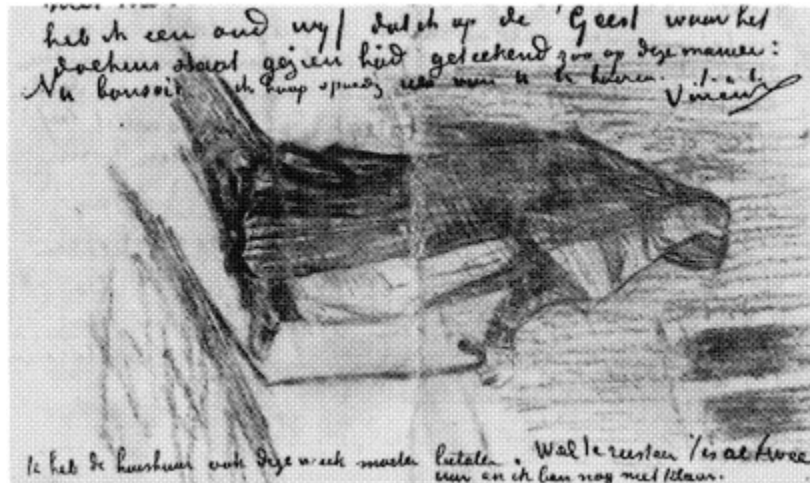 heb ik een oud wijf dat ik op de Geest waar het
staat gezien had geteekend zoo op deze manier:
Nu bonsoir ik hoop spoedig iets van u te hooren. t. à t.
Vincent
Ik heb de huishuur ook deze week moeten betalen. Wel te rusten 't is al twee
uur en ik ben nog niet klaar.